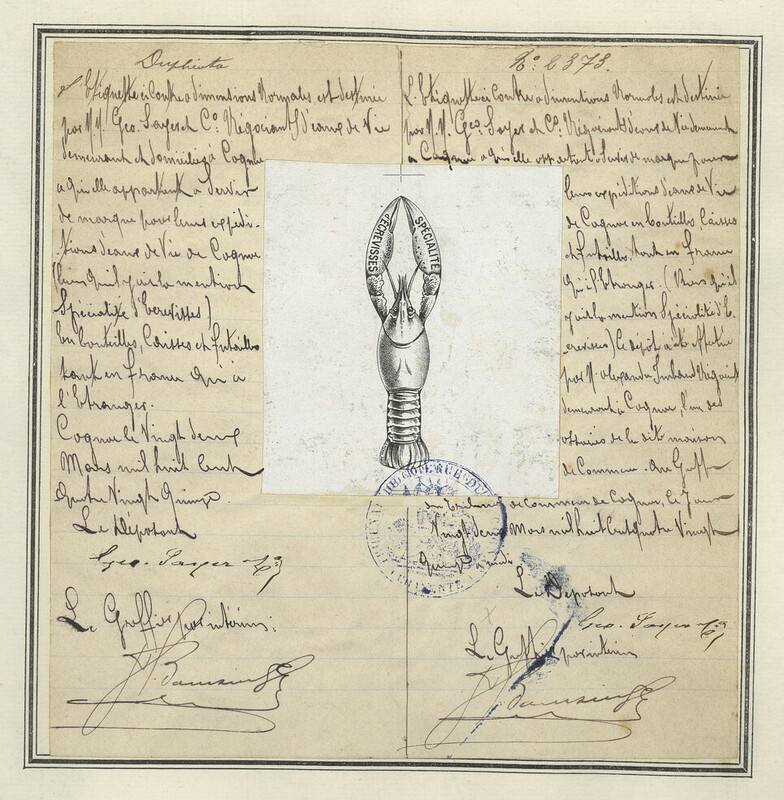 Duplicata
L'Etiquette ci contre a dimensions Normales est destinée
par M.M. Geo. Sayer et Co. Négociants d'eaux de Vie
demeurant et domiciliés à Cognac
a qui elle appartient a Servir
de marque pour leurs expédi-
tions d'eaux de Vie de Cognac
(bien qu'il y ait la mention
Spécialité d'Ecrevisses)
En bouteilles, Caisses et futailles
tant en france qu'à
l'Etranger.
Cognac le Vingt deux
Mars mil huit cent
Quatre Vingt Quinze
Le Déposant
Geo. Sayer & Co
Le Greffier par intérim:
D'ECREVISSES
SPÉCIALITÉ
No. 2373.
L'Etiquette ci Contre a dimentions Normales est destinée
par M.M. Geo. Sayer et Co. Négociants d'eaux de Vie demeurant
a Cognac a qui elle appartient a Servir de marque pour
leurs expéditions d'eaux de Vie
de Cognac en bouteilles Caisses
et futailles tant en france
qu'à l'Etranger. (Bien qu'il
y ait la mention Spécialité d'E-
crevisses) Ce dépôt a été effectué
par M. Alexandre Négociant
demeurant a Cognac, l'un des
associés de la dite maison
de Commerce. Au Greffe
du Tribunal de Commerce de Cognac, le
Vingt deux Mars mil huit Cent quatre Vingt
Quinze a midi
Le Déposant
Geo. Sayer & Co
Le Greffier par intérim